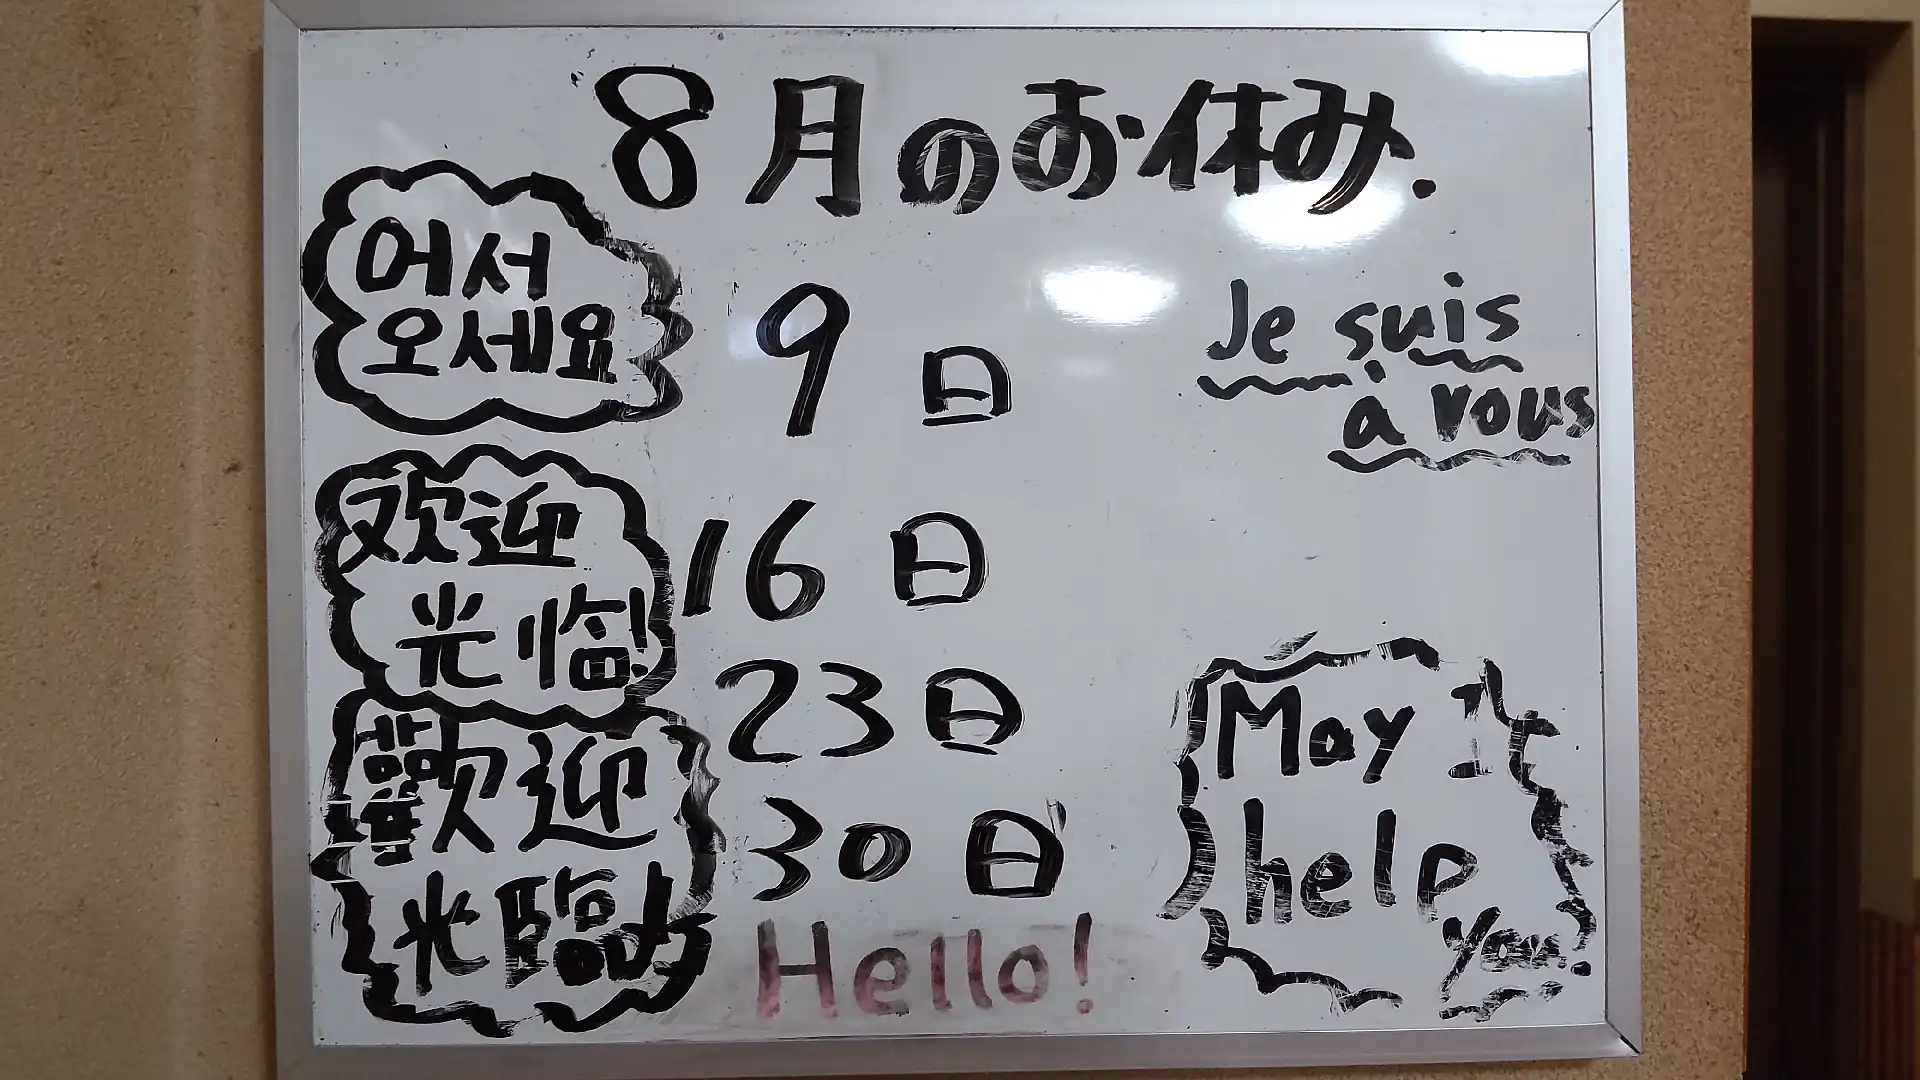 8月のお休み.
어서
오세요
9日
Je suis
à vous
欢迎
光临!
16日
23日
歡迎
光臨
30日
May I
help
you!
Hello!